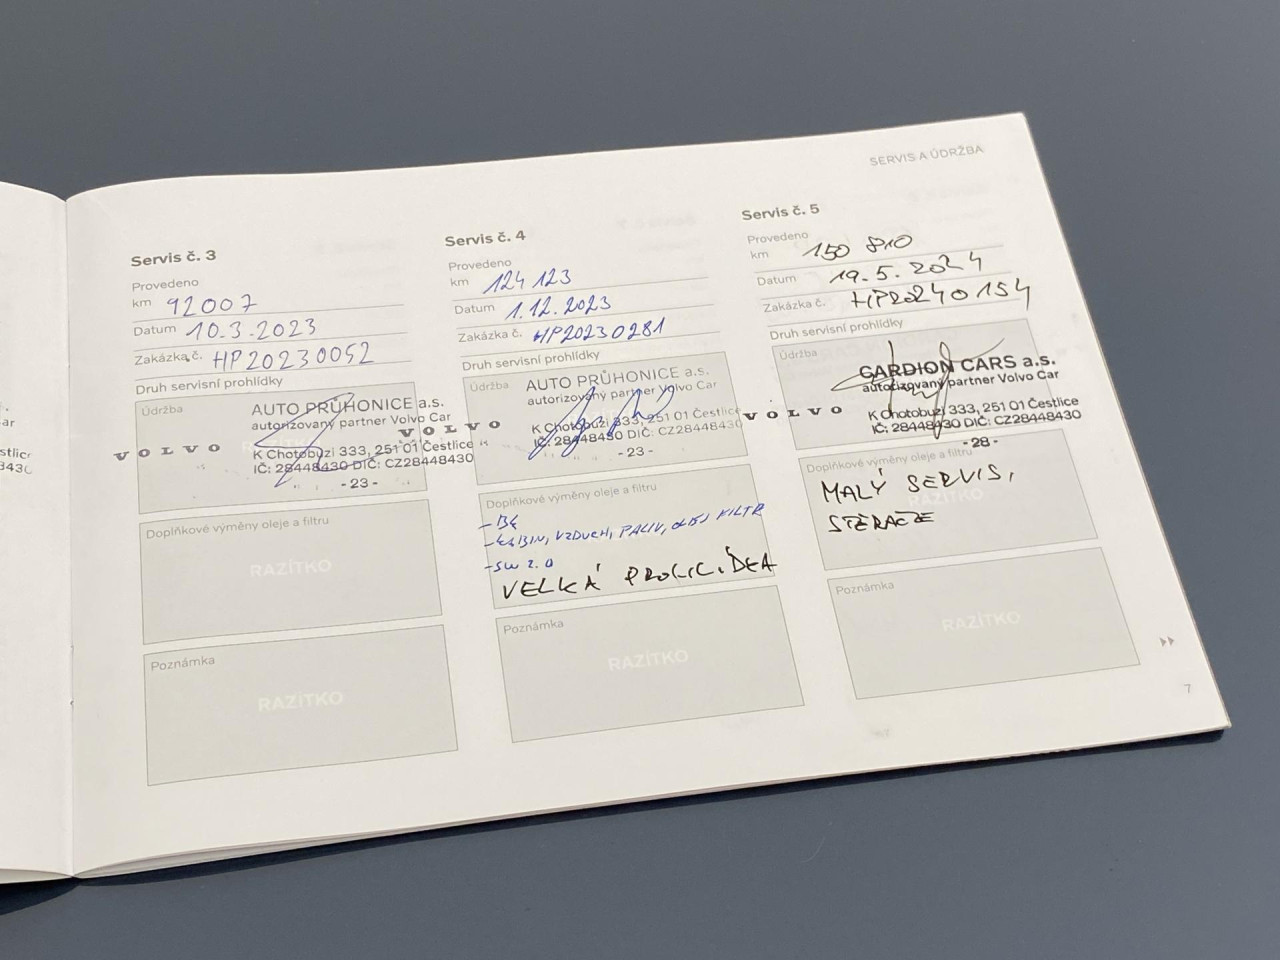 SERVIS A ÚDRŽBA
Servis č. 3
Provedeno
km 92007
Datum 10.3.2023
Zakázka č. HP20230052
Druh servisní prohlídky
Údržba
AUTO PRŮHONICE a.s.
autorizovaný partner Volvo Car
VOLVO
K Chotobuzi 333, 251 01 Čestlice
IČ: 28448430 DIČ: CZ28448430
- 23 -
Doplňkové výměny oleje a filtru
RAZÍTKO
Poznámka
RAZÍTKO
Servis č. 4
Provedeno
km 124 123
Datum 1.12.2023
Zakázka č. HP20230281
Druh servisní prohlídky
Údržba
AUTO PRŮHONICE a.s.
autorizovaný partner Volvo Car
VOLVO
K Chotobuzi 333, 251 01 Čestlice
IČ: 28448430 DIČ: CZ28448430
- 23 -
Doplňkové výměny oleje a filtru
- KABIN, VZDUCH, PALIV, OLEJ FILTR
- SW 2.0
VELKÁ
Poznámka
RAZÍTKO
Servis č. 5
Provedeno
km 150 810
Datum 19.5.2024
Zakázka č. HP20240154
Druh servisní prohlídky
Údržba
CARDION CARS a.s.
autorizovaný partner Volvo Car
VOLVO
K Chotobuzi 333, 251 01 Čestlice
IČ: 28448430 DIČ: CZ28448430
- 28 -
Doplňkové výměny oleje a filtru
RAZÍTKO
MALÝ SERVIS,
STĚRAČE
Poznámka
RAZÍTKO
7